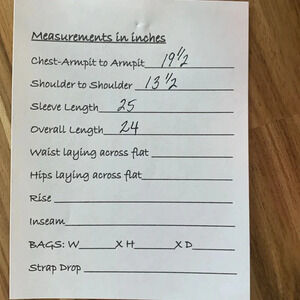 Measurements in inches
Chest-Armpit to Armpit 19 1/2
Shoulder to Shoulder 13 1/2
Sleeve Length 25
Overall Length 24
Waist laying across flat
Hips laying across flat
Rise
Inseam
BAGS: W X H X D
Strap Drop